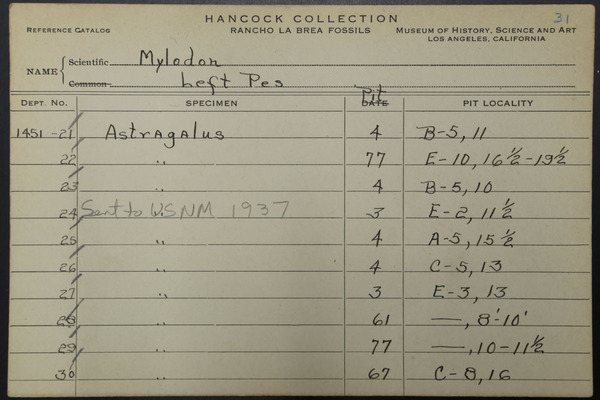 31
HANCOCK COLLECTION
REFERENCE CATALOG RANCHO LA BREA FOSSILS MUSEUM OF HISTORY, SCIENCE AND ART
LOS ANGELES, CALIFORNIA
NAME Scientific Mylodon
Common Left Pes
Pit
DEPT. NO. SPECIMEN DATE PIT LOCALITY
1451-21 Astragalus 4 B-5, 11
22 " 77 E-10, 16½-19½
23 " 4 B-5, 10
24 Sent to USNM 1937 " 3 E-2, 11½
25 " 4 A-5, 15½
26 " 4 C-5, 13
27 " 3 E-3, 13
28 " 61 —, 8'-10'
29 " 77 —, 10-11½
30 " 67 C-8, 16